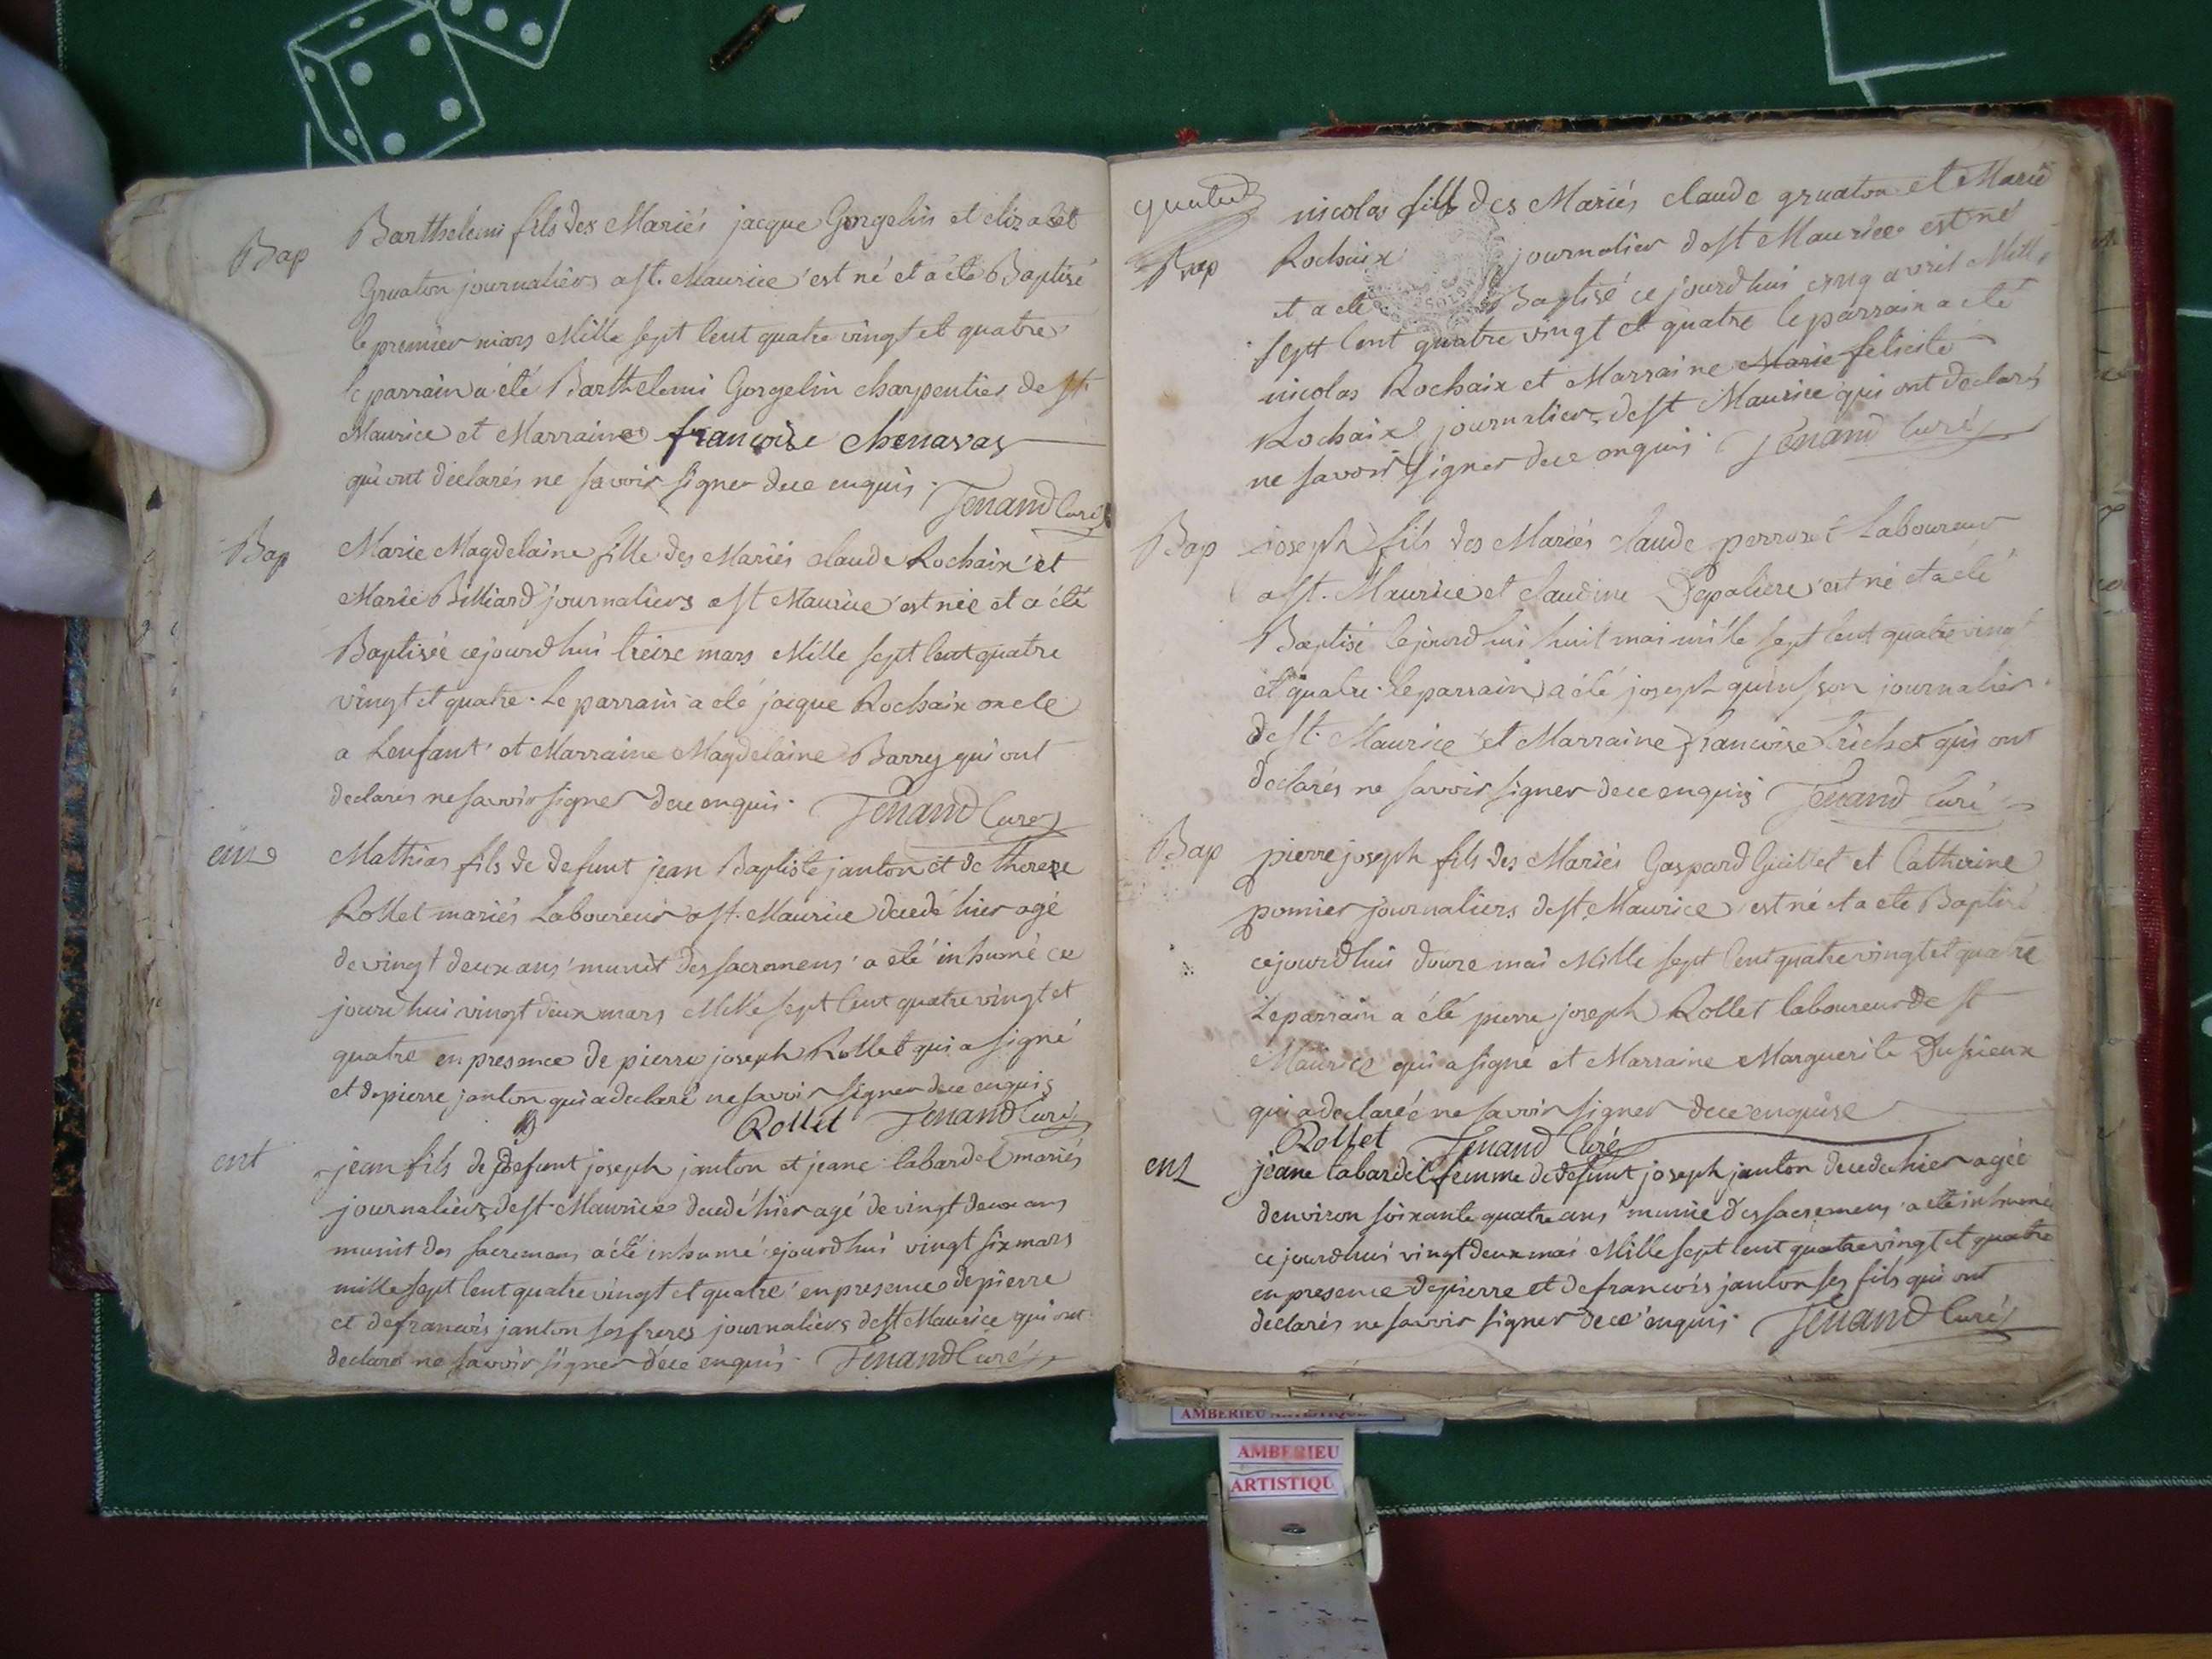 Bap
Barthelemi fils des Mariés jacque Gorgelin et elizabet
Gruaton journaliers a st. Maurice est né et a été Baptisé
le premier mars Mille sept Cent quatre vingt et quatre
le parrain a été Barthelemi Gorgelin charpentier de st
Maurice et Marraine francoise chenavas
qui ont declarés ne savoir signer de ce enquis. Tenand Curé
Bap
Marie Magdelaine fille des Mariés claude Rochaix et
Marie Billiard journaliers a st Maurice est née et a été
Baptisée cejourdhui treize mars Mille sept Cent quatre
vingt et quatre. Le parrain a eté jacque Rochaix oncle
a Lenfant et Marraine Magdelaine Barry qui ont
declarés ne savoir signer de ce enquis. Tenand Curé
ent
Mathias fils de defunt jean Baptiste janton et de therese
Rollet mariés Laboureur a st. Maurice decedé hier agé
de vingt deux ans munit des sacremens a eté inhumé ce
jourdhui vingt deux mars Mille sept Cent quatre vingt et
quatre en presence de pierre joseph Rollet qui a signé
et de pierre janton qui a declaré ne savoir signer de ce enquis
Rollet Tenand Curé
ent
jean fils de defunt joseph janton et jeane labardel mariés
journaliers de st. Maurice decedé hier agé de vingt deux ans
munit des sacremens a été inhumé cejourdhui vingt six mars
mille sept Cent quatre vingt et quatre en presence de pierre
et de francois janton ses freres journaliers de st Maurice qui ont
declaré ne savoir signer de ce enquis. Tenand Curé
Bap
nicolas fils des Mariés claude gruaton et Marie
Rochaix journalier de st Maurice est né
et a eté Baptisé ce jourdhui cinq avril Mille
sept Cent quatre vingt et quatre le parrain a eté
nicolas Rochaix et Marraine Marie felicite
Rochaix journaliers de st Maurice qui ont declarés
ne savoir signer de ce enquis. Tenand Curé
Bap
joseph fils des Mariés claude perroset Laboureur
a st. Maurice et claudine est né et a eté
Baptisé Cejourdhui huit mai mille sept Cent quatre vingt
et quatre. le parrain a été joseph quinson journalier
de st. Maurice et Marraine francoise trichet qui ont
declarés ne savoir signer de ce enquis Tenand Curé
Bap
pierre joseph fils des Mariés Gaspard Guillet et Catherine
pomier journaliers de st Maurice est né et a eté Baptisé
cejourdhui douze mai Mille sept Cent quatre vingt et quatre
Le parrain a été pierre joseph Rollet laboureur de st
Maurice qui a signé et Marraine Marguerite Dussieux
qui a declaréé ne savoir signer de ce enquise
Rollet Tenand Curé
ent
jeane labardel femme de defunt joseph janton decedé hier agée
denviron soixante quatre ans munie des sacremens a eté inhumée
cejourdhui vingt deux mai Mille sept Cent quatre vingt et quatre
en presence de pierre et de francois janton ses fils qui ont
declarés ne savoir signer de ce enquis. Tenand Curé
AMBERIEU ARTISTIQUE
AMBERIEU
ARTISTIQU